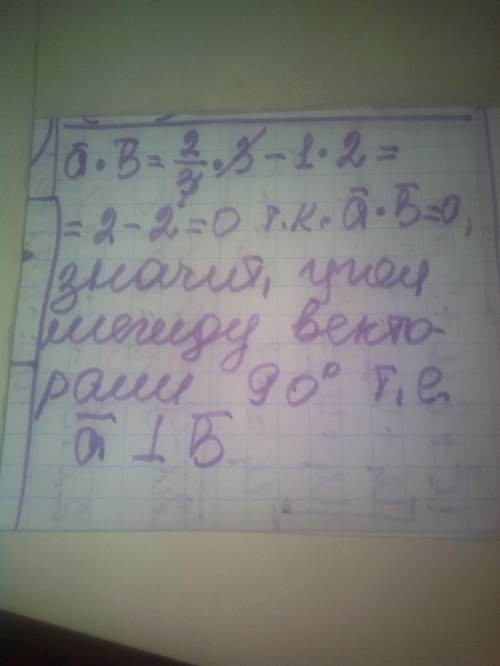 ā · b̄ = 2/3 · 3 − 1 · 2 =
= 2 − 2 = 0 т.к. ā · b̄ = 0,
значит, угол
между векто-
рами 90° т.е.
ā ⊥ b̄